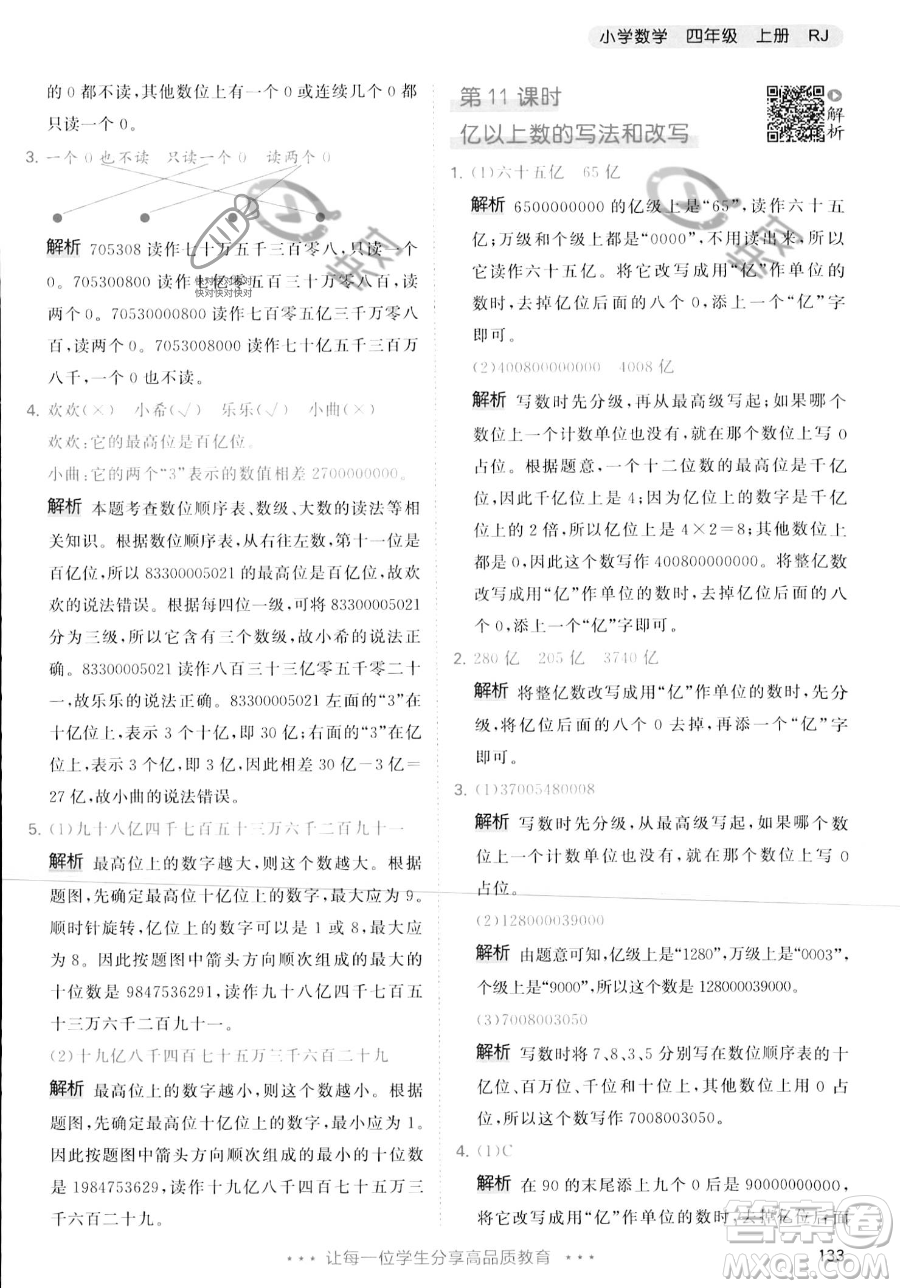 小学数学 四年级 上册 RJ
的 0 都不读,其他数位上有一个 0 或连续几个 0 都
只读一个 0。
3. 一个 0 也不读 只读一个 0 读两个 0
解析 705308 读作七十万五千三百零八,只读一
个 0。700005300 读作七亿零五千三百,只读一
快对快对快对
快对快对快对
读两个 0。70530000800 读作七百零五亿三千万零八百,
八千,一个 0 也不读。
4. 欢欢(×) 小希(√) 乐乐(√) 小曲(×)
欢欢:它的最高位是百亿位。
小曲:它的两个“3”表示的数值相差 2700000000。
解析 本题考查数位顺序表、数级、大数的读法等相
关知识。根据数位顺序表,从右往左数,第十一位是
百亿位,所以 83300005021 的最高位是百亿位,故欢
欢的说法错误。根据每四位一级,可将 83300005021
分为三级,所以它含有三个数级,故小希的说法正
确。83300005021 读作八百三十三亿零五千零二十
一,故乐乐的说法正确。83300005021 左面的“3”在
十亿位上,表示 3 个十亿,即 30 亿;右面的“3”在亿
位上,表示 3 个亿,即 3 亿。因此相差 30 亿-3 亿=
27 亿,故小曲的说法错误。
5. (1)九十八亿四千七百五十三万六千二百九十一
解析 最高位上的数字越大,这个数越大。根据
题图,先确定最高位十亿位上的数字,最大应为 9。
顺时针旋转,亿位上的数字可以是 1 或 8,最大应
为 8。因此按题图中箭头方向顺次组成的最大的
十位数是 9847536291,读作九十八亿四千七百五
十三万六千二百九十一。
(2)十九亿八千四百七十五万三千六百二十九
解析 最高位上的数字越小,这个数越小。根据
题图,先确定最高位十亿位上的数字,最小应为 1。
因此按题图中箭头方向顺次组成的最小的十位数
是 1984753629,读作十九亿八千四百七十五万三
千六百二十九。
第 11 课时
亿以上数的写法和改写
解析
1. (1)六十五亿 65 亿
解析 6500000000 的亿级上是“65”,读作六十五
亿;万级和个级上都是“0000”,不用读出来,所以
它读作六十五亿。将它改写成用“亿”作单位的
数时,去掉亿位后面的八个 0,添上一个“亿”字
即可。
(2)400800000000 4008 亿
解析 写数时先分级,再从最高级写起;如果哪个
数位上一个计数单位也没有,就在那个数位上写 0
占位。根据题意,一个十二位数的最高位是千亿
位,因此千亿位上是 4;十亿位上的数字是千亿位
上的 2 倍,所以十亿位上是 4×2=8;其他数位上
都是 0,因此这个数写作 400800000000。将整亿数
改写成用“亿”作单位的数时,去掉亿位后面的八
个 0,添上一个“亿”字即可。
2. 280 亿 205 亿 3740 亿
解析 将整亿数改写成用“亿”作单位的数时,先分
级,将亿位后面的八个 0 去掉,再添一个“亿”字
即可。
3. (1)37005480008
解析 写数时先分级,从最高级写起,如果哪个数
位上一个计数单位也没有,就在那个数位上写 0
占位。
(2)128000039000
解析 由题意可知,亿级上是“1280”,万级上是“0003”,
个级上是“9000”,所以这个数是 128000039000。
(3)7008003050
解析 写数时将 7、8、3、5 分别写在数位顺序表的十
亿位、百万位、千位和十位上,其他数位上用 0
占位,因此这个数写作 7008003050。
4. (1)C
解析 在 90 的末尾添上一个 0 是 900,
让每一位学生分享高品质教育
133
答案圈